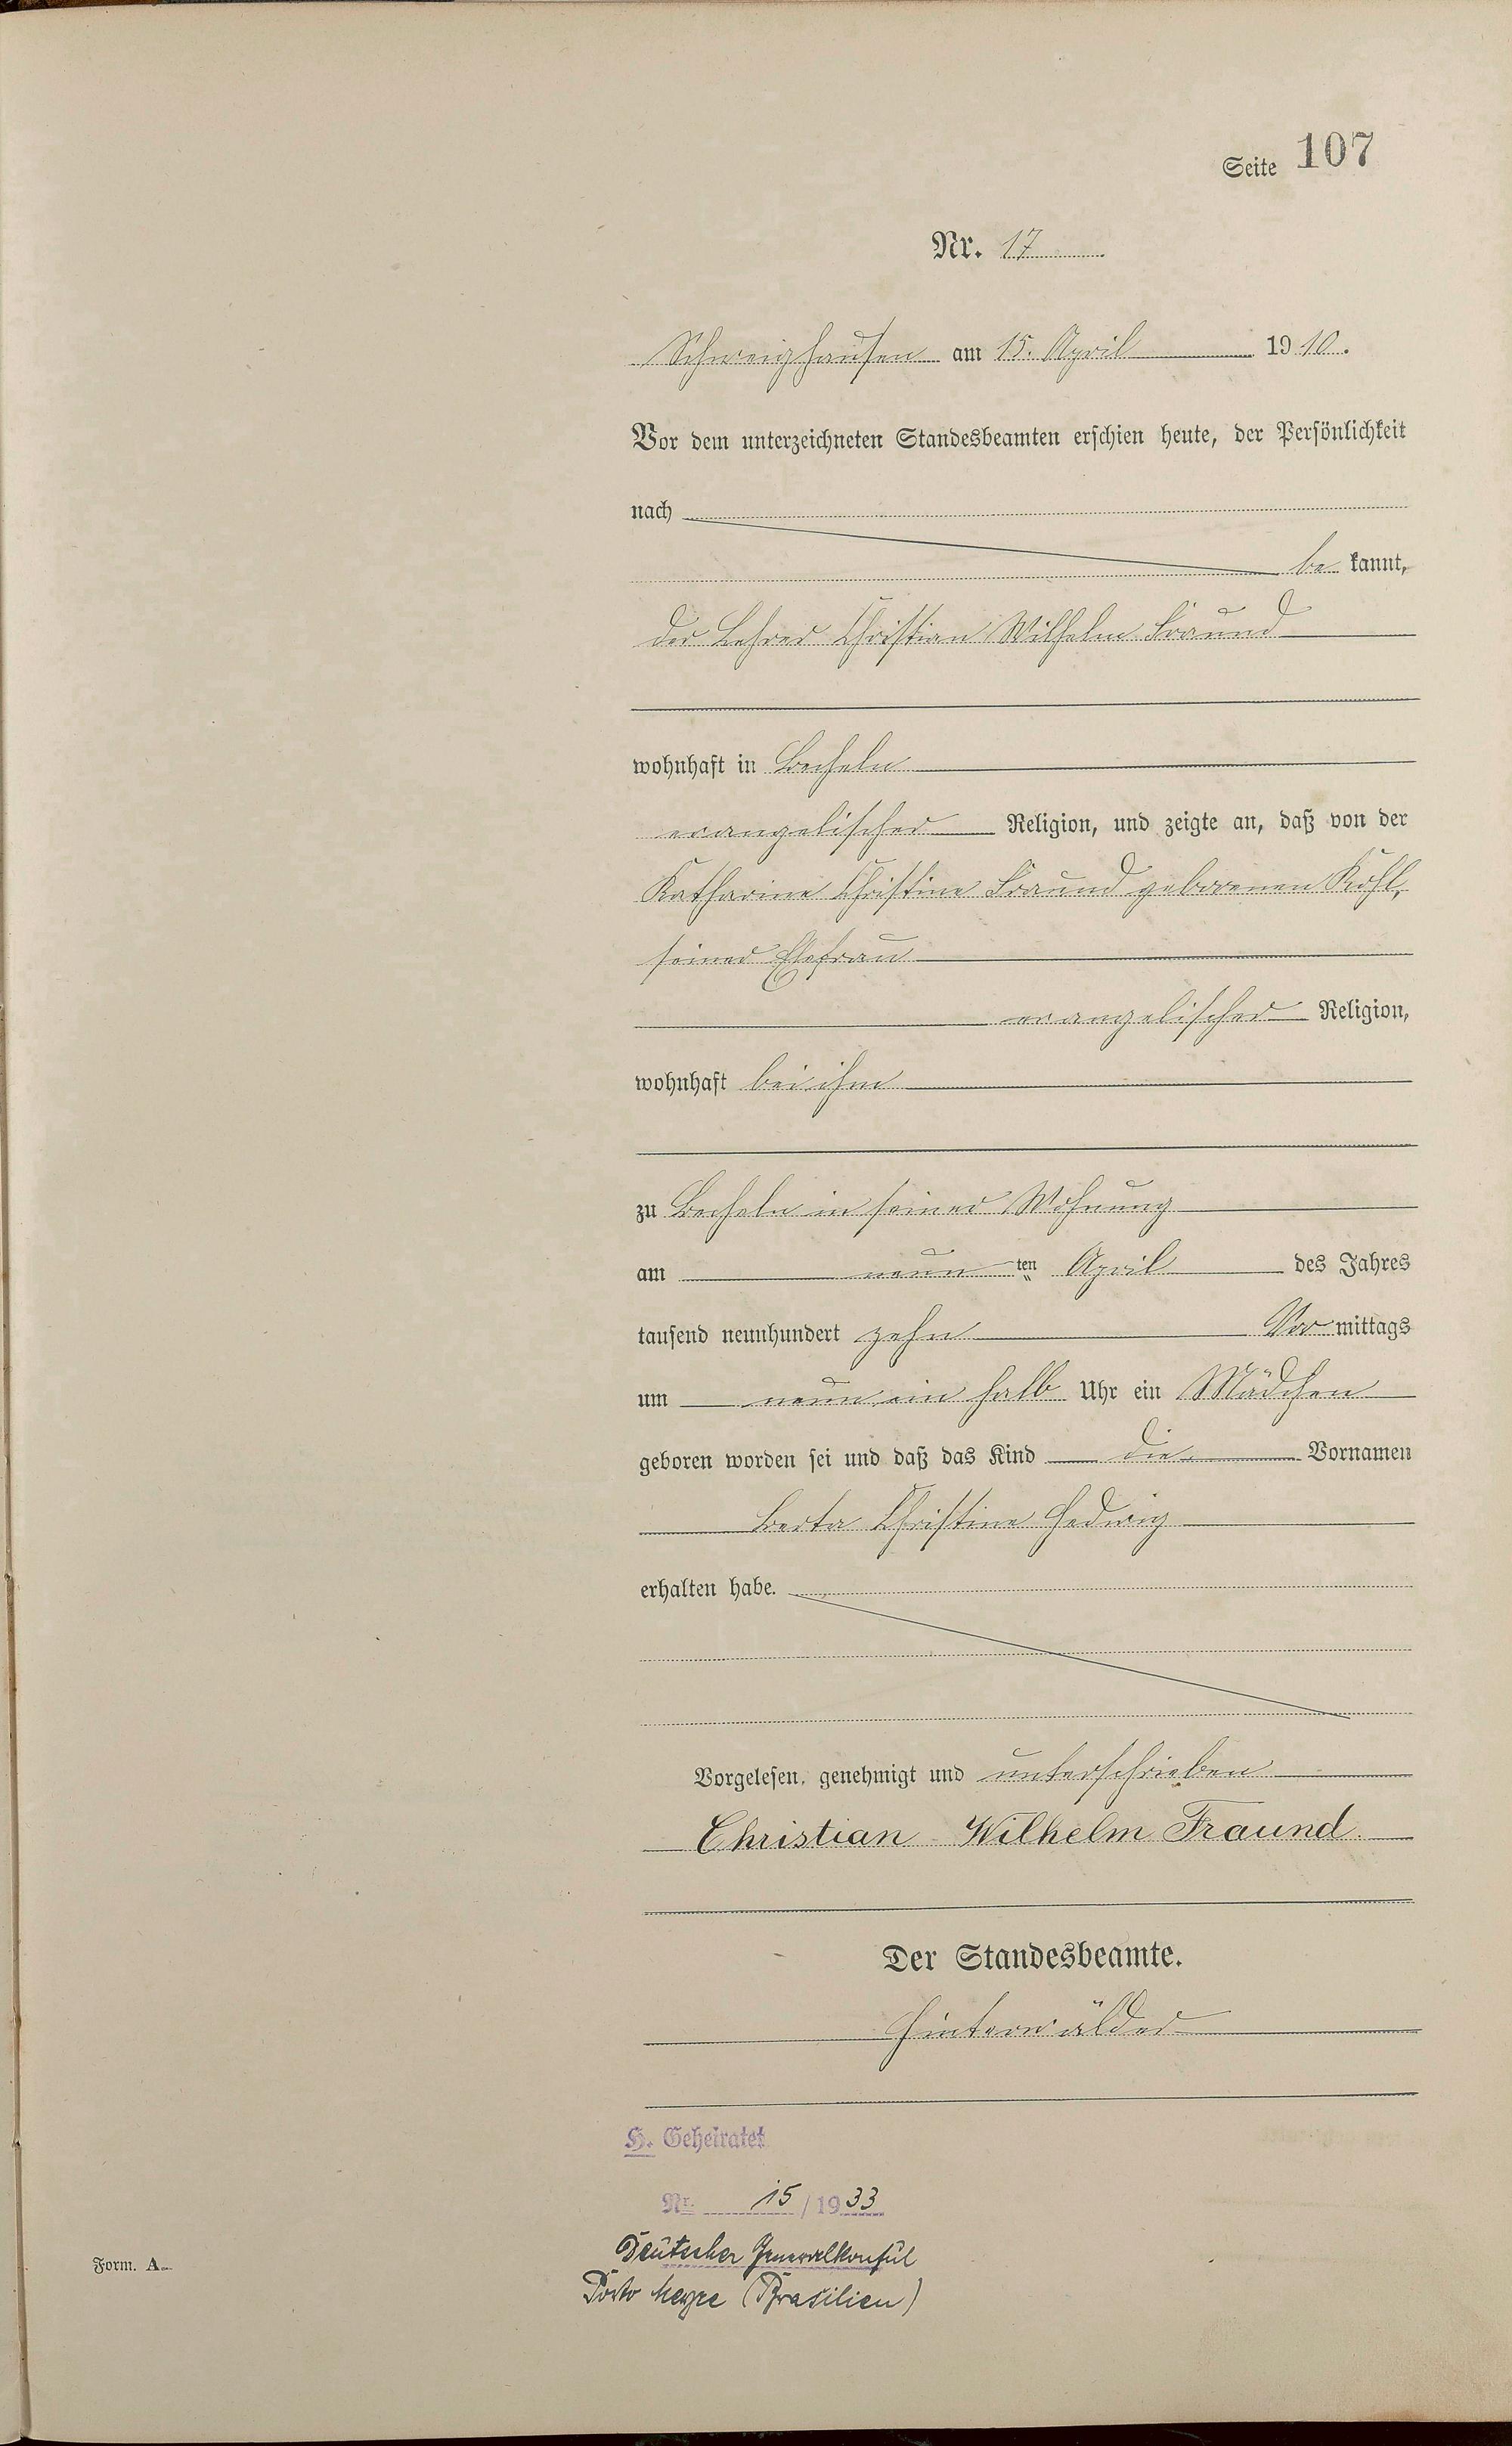 Seite 107
Nr. 17
Schweighausen am 15. April 1910.
Vor dem unterzeichneten Standesbeamten erschien heute, der Persönlichkeit
nach
be kannt,
der Lehrer Christian Wilhelm Fraund
wohnhaft in Becheln
evangelischer Religion, und zeigte an, daß von der
Katharine Christine Fraund geborenen Kuhl,
seiner Ehefrau
evangelischer Religion,
wohnhaft bei ihm
zu Becheln in seiner Wohnung
am neun ten April des Jahres
tausend neunhundert zehn Vor mittags
um neun ein halb Uhr ein Mädchen
geboren worden sei und daß das Kind die Vornamen
Berta Christine Hedwig
erhalten habe.
Vorgelesen, genehmigt und unterschrieben
Christian Wilhelm Fraund.
Der Standesbeamte.
Hinterwälder
H. Geheiratet
Nr. 15/1933
Deutscher Generalkonsul
Porto Alegre (Brasilien)
Form. A.